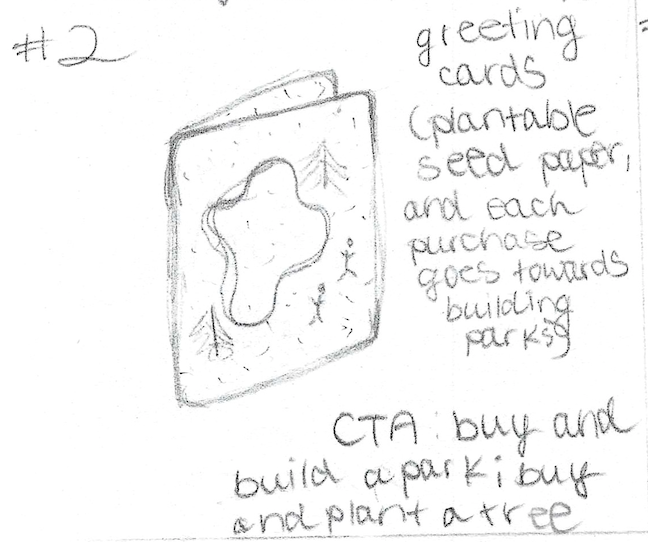 #2
greeting
cards
(plantable
seed paper,
and each
purchase
goes towards
building
parks)
CTA: buy and
build a park; buy
and plant a tree